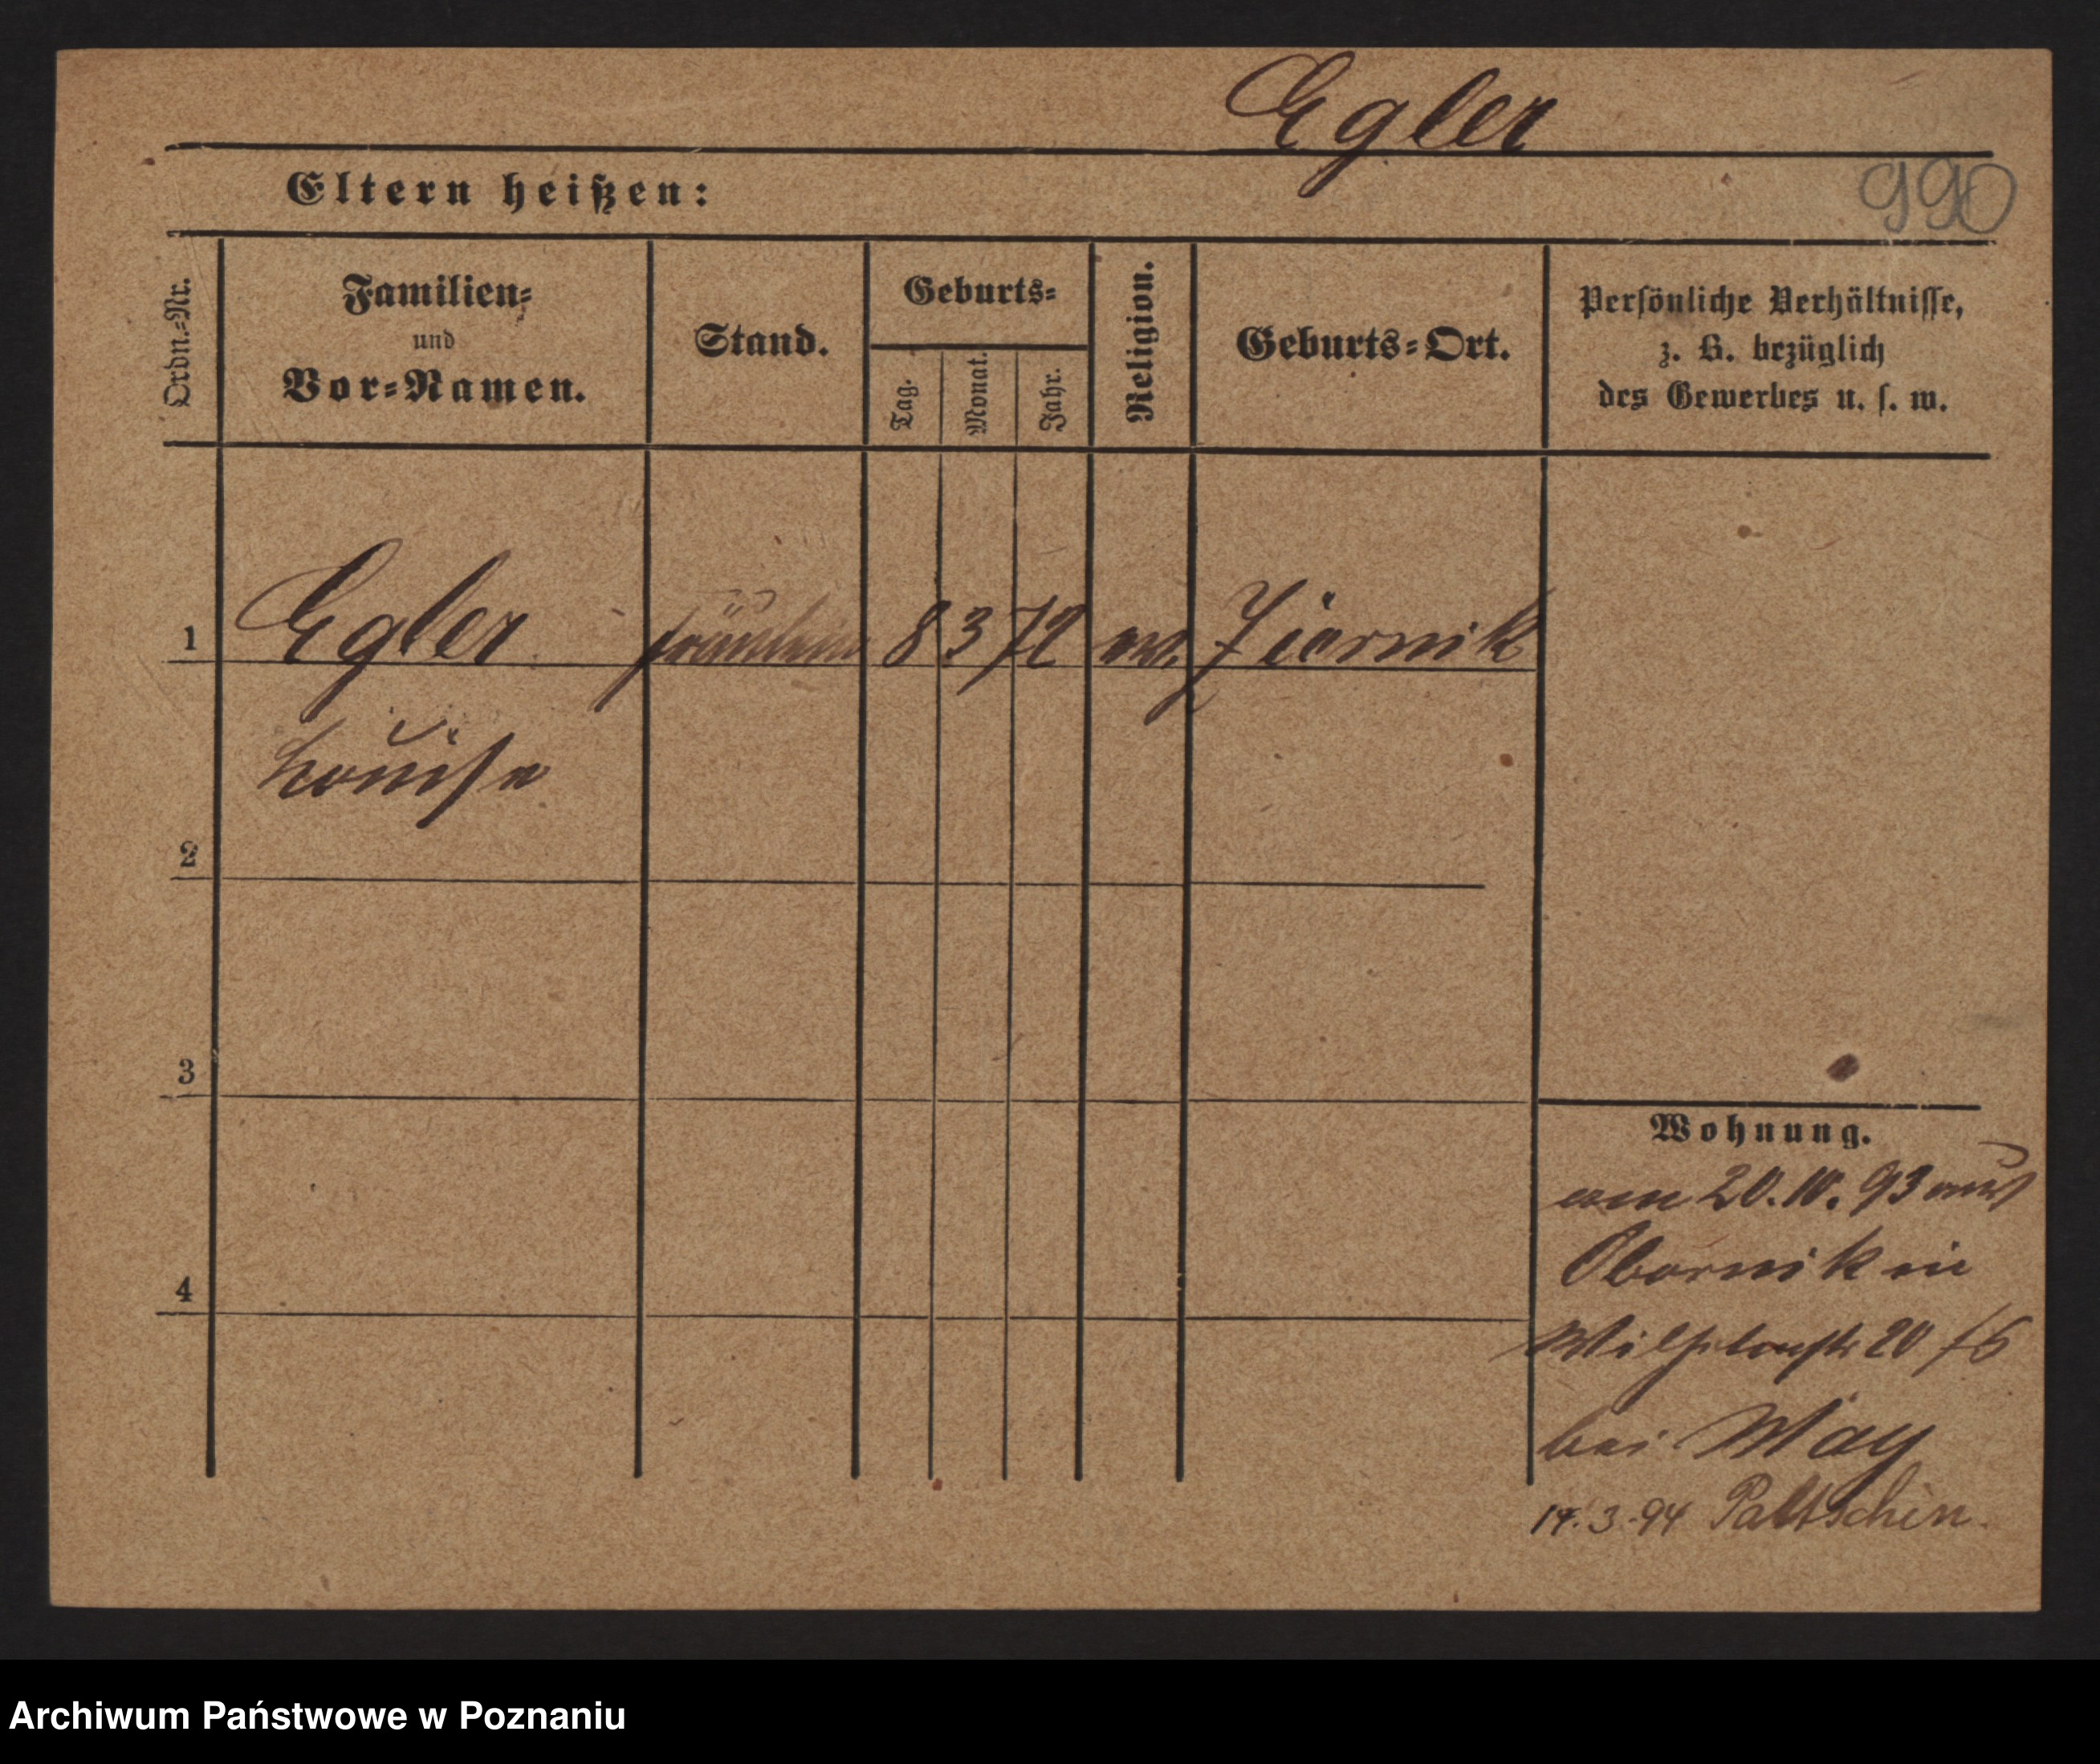 Egler
990
Eltern heißen:
Ordn.=Nr.
Familien=
und
Vor=Namen.
Stand.
Geburts=
Tag.
Monat.
Jahr.
Religion.
Geburts=Ort.
Persönliche Verhältnisse,
z. B. bezüglich
des Gewerbes u. s. w.
1 Egler fräulein 8 3 72 ev.
Louise
2
3
4
Wohnung.
am 20.10.93 aus
Obornik in
20
bei May
14.3.94 Paltschin.
Archiwum Państwowe w Poznaniu